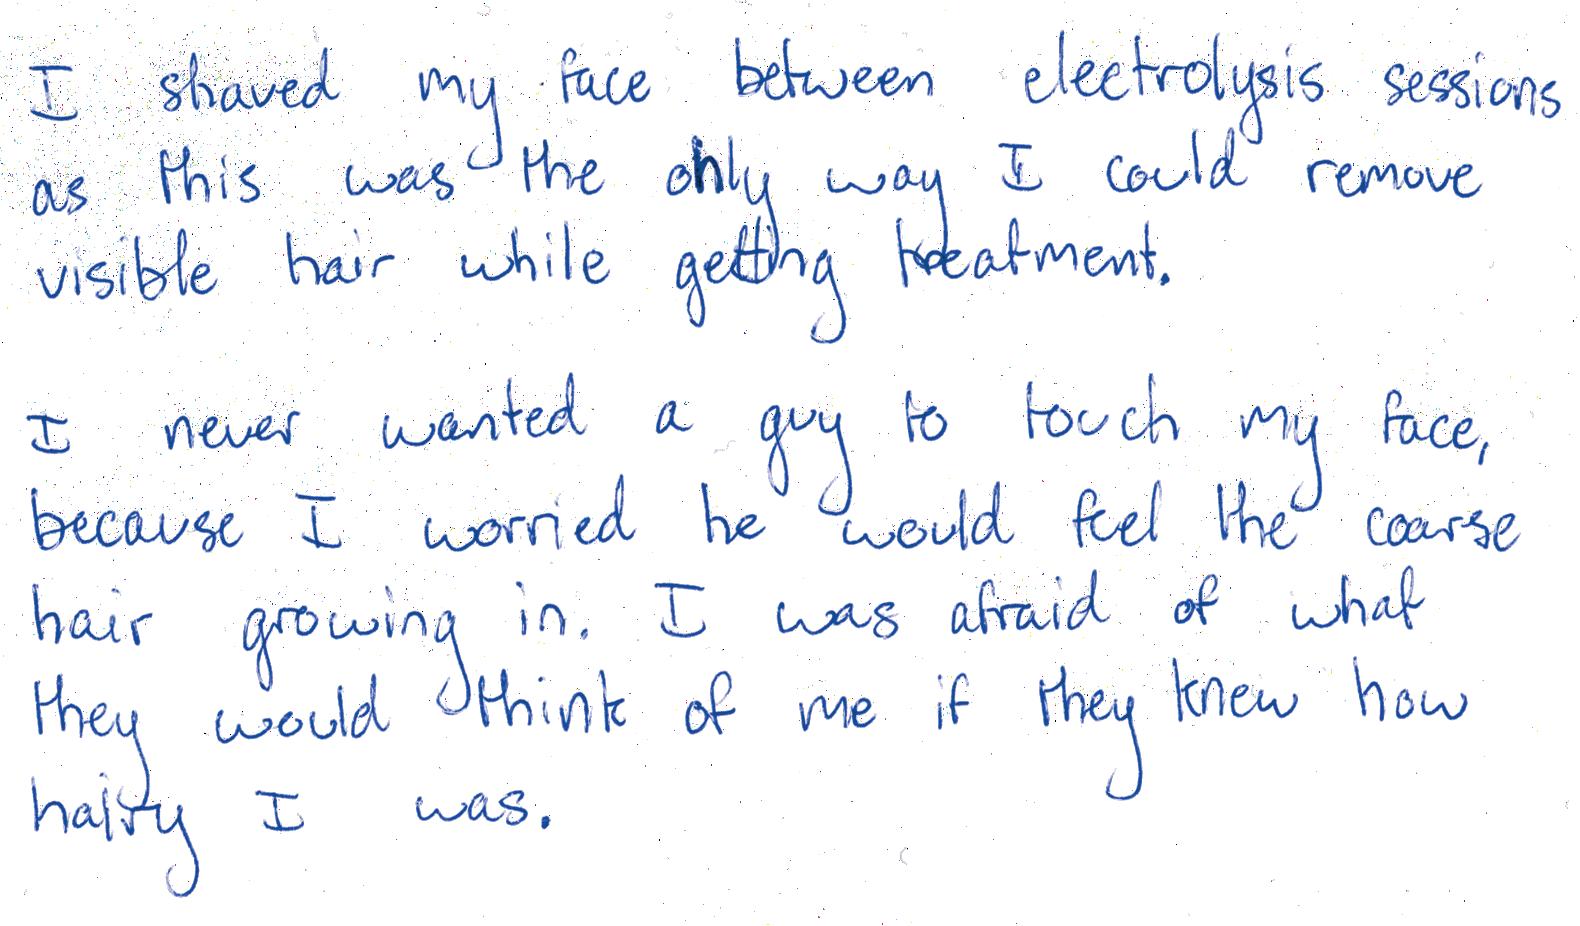 I shaved my face between electrolysis sessions
as this was the only way I could remove
visible hair while getting treatment.
I never wanted a guy to touch my face,
because I worried he would feel the coarse
hair growing in. I was afraid of what
they would think of me if they knew how
hairy I was.